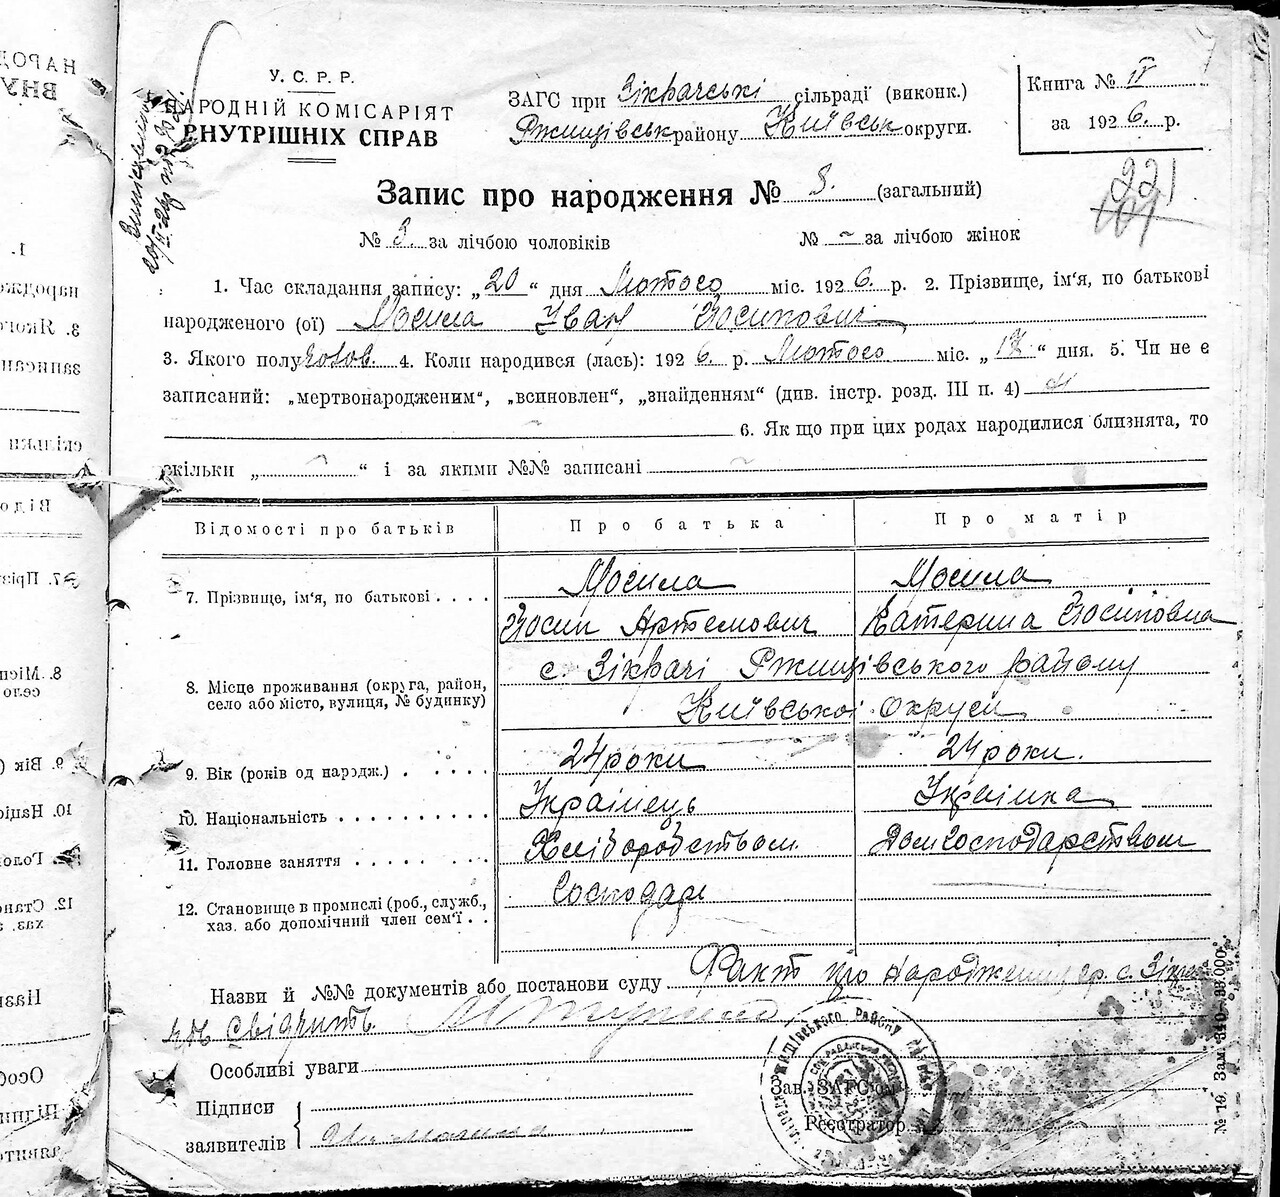 У. С. Р. Р.
НАРОДНІЙ КОМІСАРІЯТ
ВНУТРІШНІХ СПРАВ
ЗАГС при Зікрачські сільраді (виконк.)
Ржищівськ району Київськ округи.
Книга № II
за 1926 р.
221
101
Запис про народження № 3. (загальний)
№ 3. за лічбою чоловіків № – за лічбою жінок
1. Час складання запису: „20“ дня Лютого міс. 1926. р. 2. Прізвище, ім'я, по батькові
народженого (ої) Могила Іван Йосипович
3. Якого полу чолов. 4. Коли народився (лась): 1926. р. Лютого міс. „17“ дня. 5. Чи не є
записаний: „мертвонародженим“, „всиновлен“, „знайденням“ (див. інстр. розд. III п. 4)
6. Як що при цих родах народилися близнята, то
скільки „ ~ “ і за якими №№ записані ~
Відомості про батьків Про батька Про матір
7. Прізвище, ім'я, по батькові . . . . Могила Могила
Йосип Артемович Катерина Йосиповна
8. Місце проживання (округа, район,
село або місто, вулиця, № будинку)
с. Зікрачі Ржищівського району
Київської округи
9. Вік (років од народж.) . . . . . 24 роки 24 роки.
10. Національність . . . . . . . . . . Українець Українка
11. Головне заняття . . . . . . . . Хліборобством Домгосподарством
12. Становище в промислі (роб., служб., Господарь
хаз. або допомічний член сем'ї . .
Назви й №№ документів або постанови суду Факт про народження гр. с. Зікра
свідчить
Особливі уваги
Підписи
заявителів
Зав. ЗАГС'ом
Реєстратор
№ 10. Зам. 340—33.000.